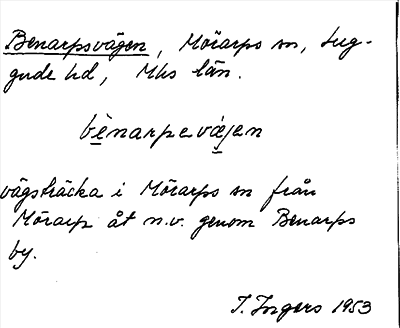 Benarpsvägen, Mörarps sn, Lug-
gude hd, Mhs län.
bènarpevä̱jen
vägsträcka i Mörarps sn från
Mörarp åt n.v. genom Benarps
by.
I. Ingers 1953